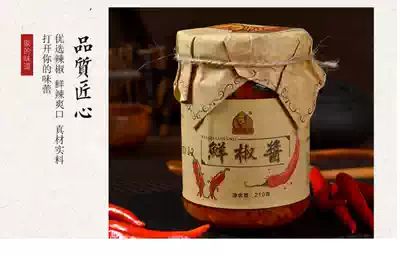 家的味道
品質匠心
优选辣椒 鲜辣爽口 真材实料
打开你的味蕾
鮮椒醬
净含量:210克